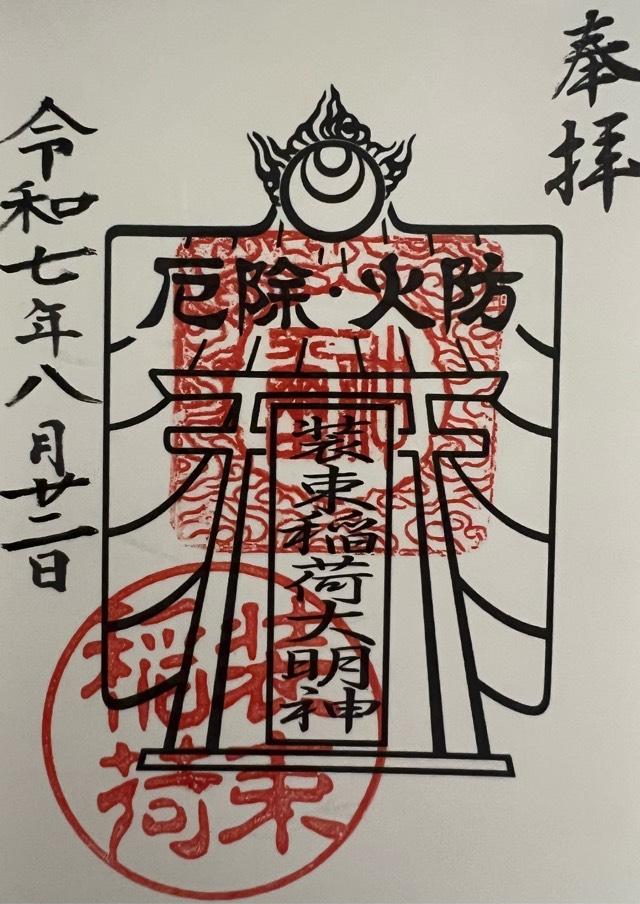 奉拝
厄除・火防
装束稲荷大明神
装束
稲荷
令和七年八月廿二日